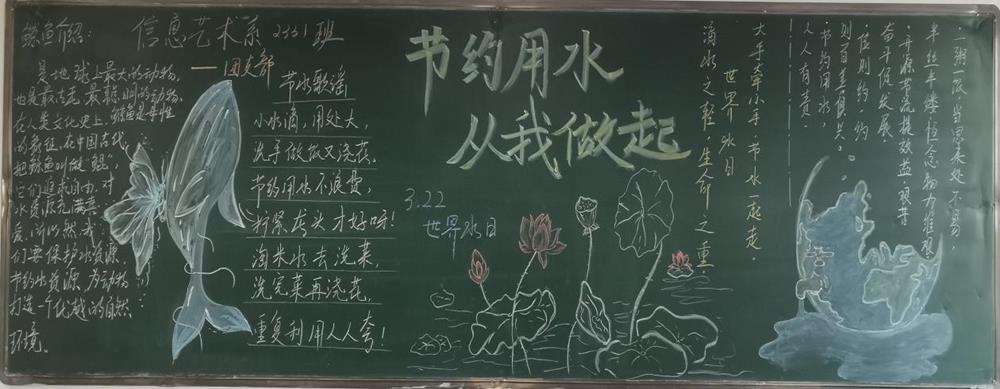 鲸鱼介绍:
是地球上最大的动物,
也是最古老、最聪明的动物,
在人类文化史上,鲸鱼是母性
的象征,在中国古代,
把鲸鱼叫做“鲲”
它们追求自由,对
水资源充满喜
爱,所以然我
们要保护水资源,
节约水资源,为动物
打造一个优越的自然
环境。
信息艺术系2331班
——团支部
节水歌谣
小水滴,用处大,
洗手做饭又浇花。
节约用水不浪费,
拧紧龙头才好呀!
淘米水去洗菜,
洗完菜再浇花,
重复利用人人夸!
节约用水
从我做起
3.22
世界水日
大手牵小手,节水一起走。
世界水日
滴水之轻 生命之重
一粥一饭,当思来处不易,
半丝半缕,恒念物力维艰
开源节流提效益
奋斗促发展
节约用水
人人有责!